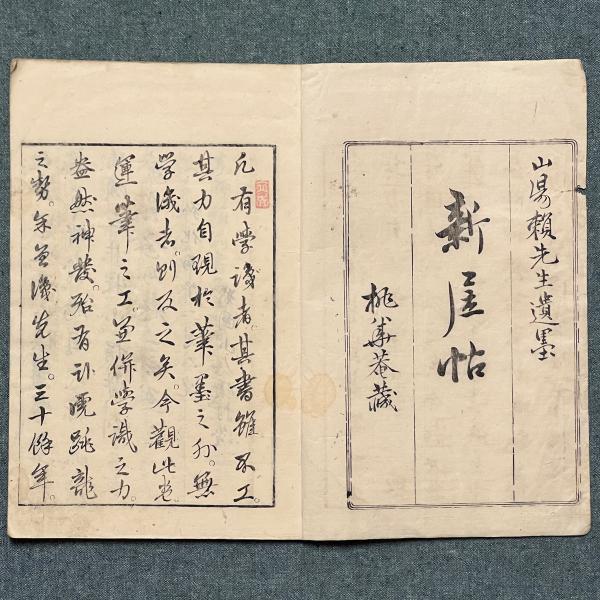 山陽頼先生遺墨
新居帖
桃華菴藏
凡有學識者。其書雖不工。
其力自現於筆墨之外。無
學識者。則反之矣。今觀此卷。
運筆之工。並併學識之力。
盎然神發。殆有臥虎跳龍
之勢。余並識先生。三十餘年。